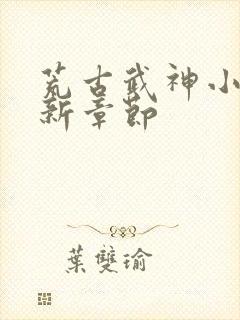 荒古武神小
新章節
葉雙瑜